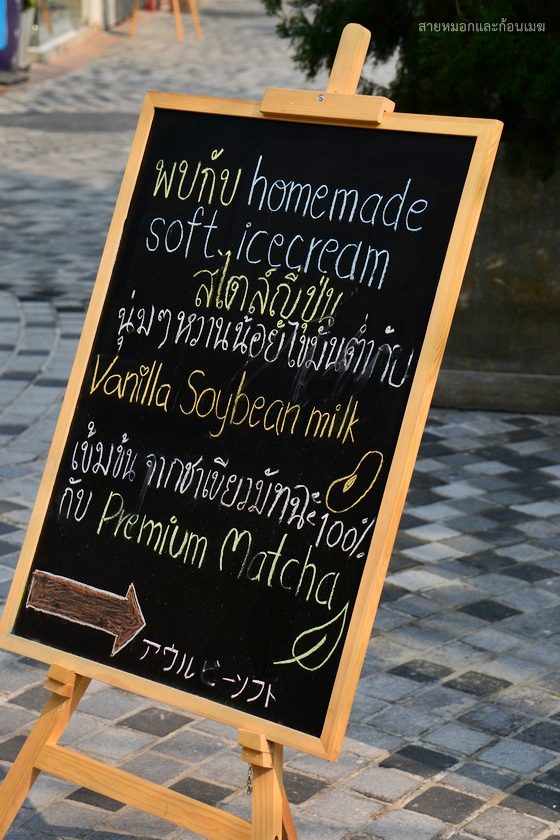 สายหมอกและก้อนเมฆ
พบกับ homemade
soft icecream
สไตล์ญี่ปุ่น
นุ่มๆหวานน้อยไขมันต่ำกับ
Vanilla Soybean milk
เข้มข้น จากชาเขียวมัทฉะ100%
กับ Premium Matcha
アウルビーソフト